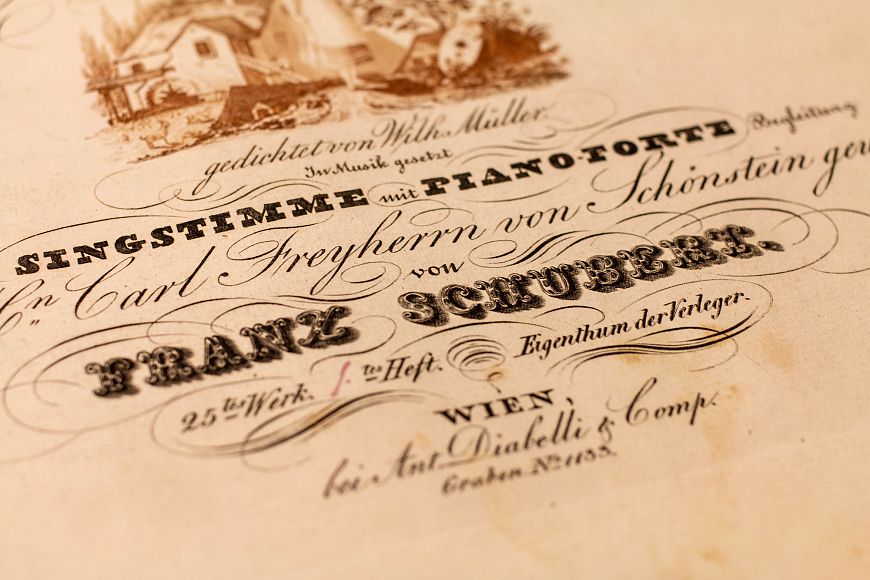 gedichtet von Wilh. Müller.
In Musik gesetzt
SINGSTIMME mit PIANO-FORTE Begleitung
Hn. Carl Freyherrn von Schönstein gew
von
FRANZ SCHUBERT.
25tes Werk. 1. tes Heft. Eigenthum der Verleger.
WIEN,
bei Ant. Diabelli & Comp.
Graben No. 1133.